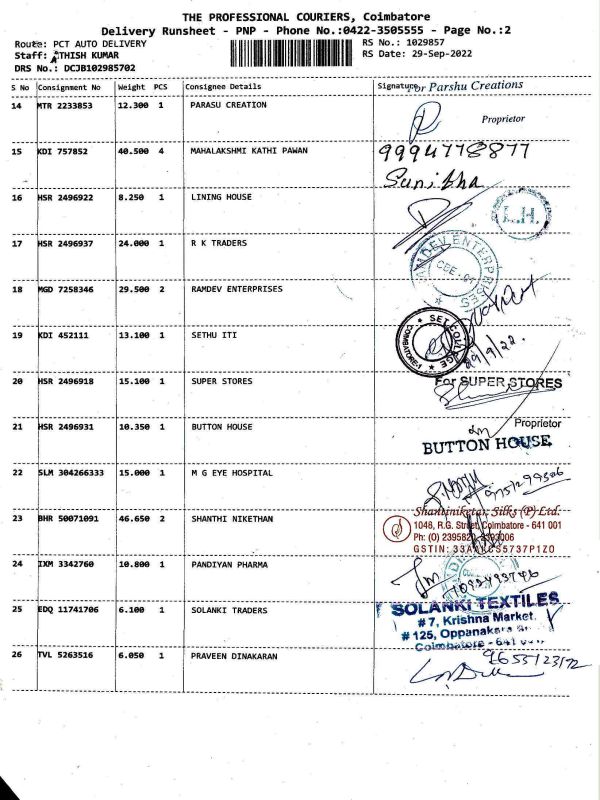 THE PROFESSIONAL COURIERS, Coimbatore
Delivery Runsheet - PNP - Phone No.:0422-3505555 - Page No.:2
Route: PCT AUTO DELIVERY RS No.: 1029857
Staff: ATHISH KUMAR RS Date: 29-Sep-2022
DRS No.: DCJB102985702
S No Consignment No Weight PCS Consignee Details Signature
For Parshu Creations
14 MTR 2233853 12.300 1 PARASU CREATION
Proprietor
15 KDI 757852 40.500 4 MAHALAKSHMI KATHI PAWAN 9994778877
Sunitha
16 HSR 2496922 8.250 1 LINING HOUSE
L.H.
17 HSR 2496937 24.000 1 R K TRADERS
18 MGD 7258346 29.500 2 RAMDEV ENTERPRISES
RAMDEV ENTERPRISES
19 KDI 452111 13.100 1 SETHU ITI
SET COLLEGE
COIMBATORE-1
29/9/22.
20 HSR 2496918 15.100 1 SUPER STORES
For SUPER STORES
21 HSR 2496931 10.350 1 BUTTON HOUSE
Proprietor
BUTTON HOUSE
22 SLM 304266333 15.000 1 M G EYE HOSPITAL
23 BHR 50071091 46.650 2 SHANTHI NIKETHAN
Shantiniketan Silks (P) Ltd.
1048, R.G. Street, Coimbatore - 641 001
Ph: (O)
24 IXM 3342760 10.800 1 PANDIYAN PHARMA
25 EDQ 11741706 6.100 1 SOLANKI TRADERS
SOLANKI TEXTILES
# 7, Krishna Market.
# 125, Oppanakara
Coimbatore - 641
26 TVL 5263516 6.050 1 PRAVEEN DINAKARAN